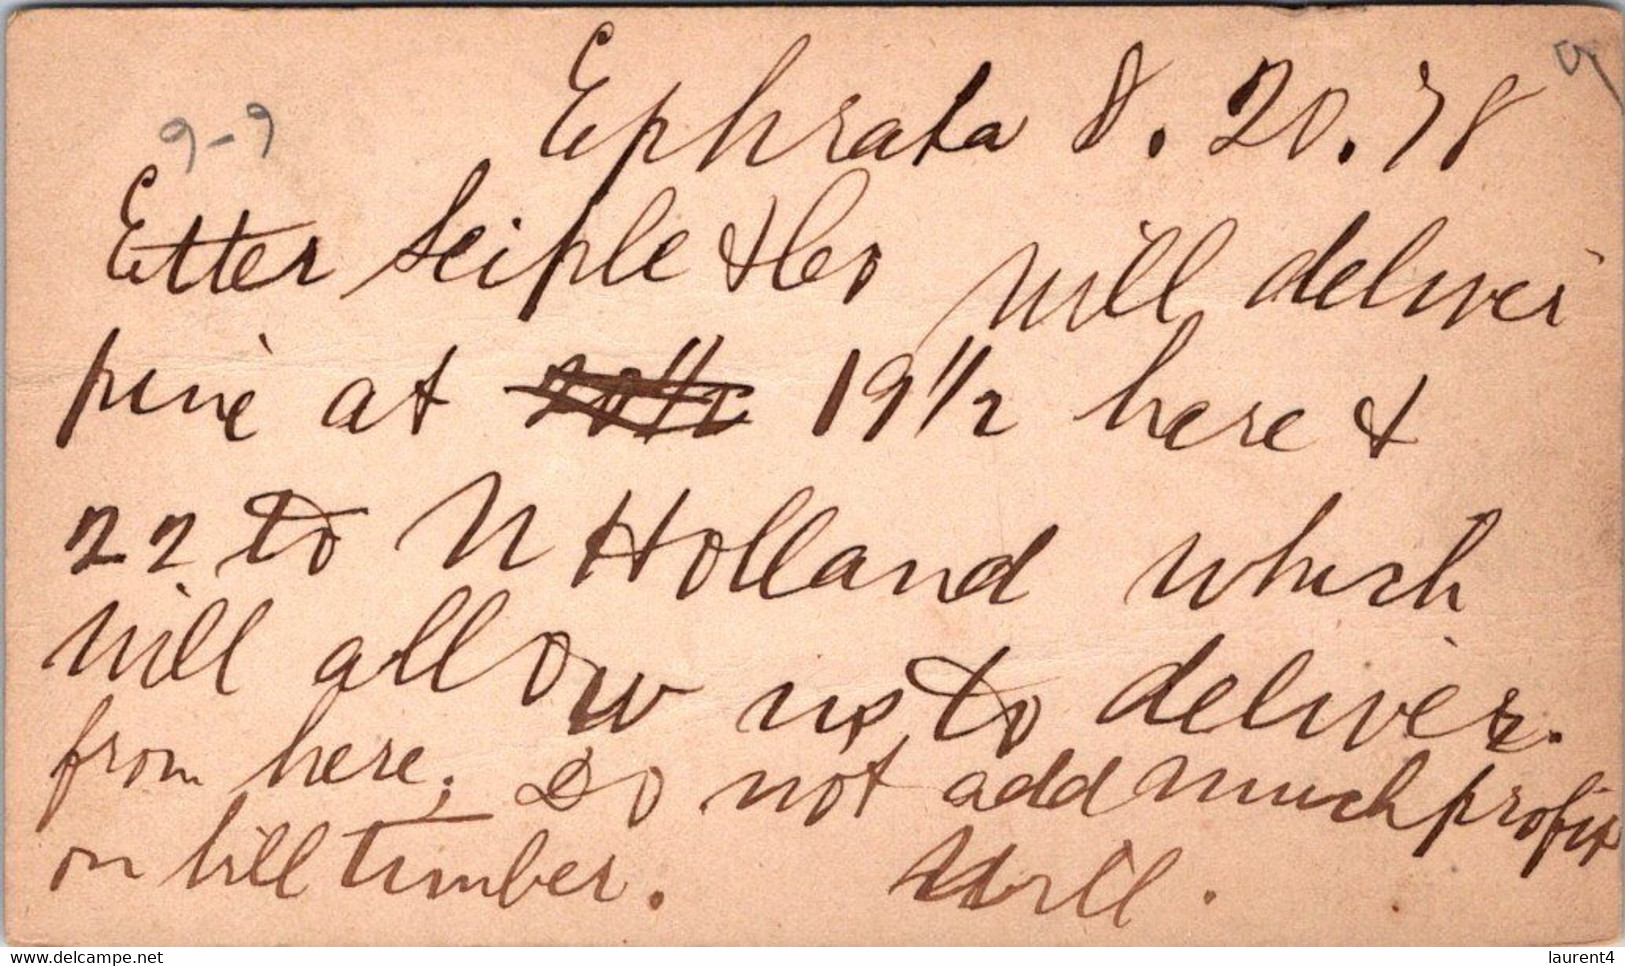 Ephrata 8.20.78
9-9
Etter Seiple & Co will deliver
pine at 20 1/2 19 1/2 here &
22 to N Holland which
will allow us to deliver.
from here. Do not add much profit
on bill timber.
www.delcampe.net
laurent4